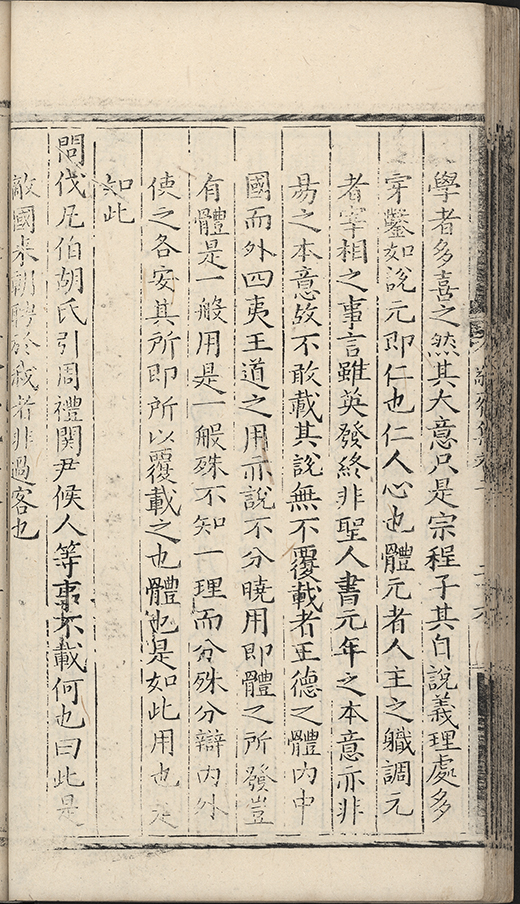 學者多喜之然其大意只是宗程子其自說義理處多
穿鑿如說元即仁也仁人心也體元者人主之職調元
者宰相之事言雖英發終非聖人書元年之本意亦非
易之本意故不敢載其說無不覆載者王德之體內中
國而外四夷王道之用亦說不分曉用即體之所發豈
有體是一般用是一般殊不知一理而分殊分辯內外
使之各安其所即所以覆載之也體也是如此用也是
如此
問伐凡伯胡氏引周禮関尹候人等事不載何也曰此是
敵國来朝聘於我者非過客也